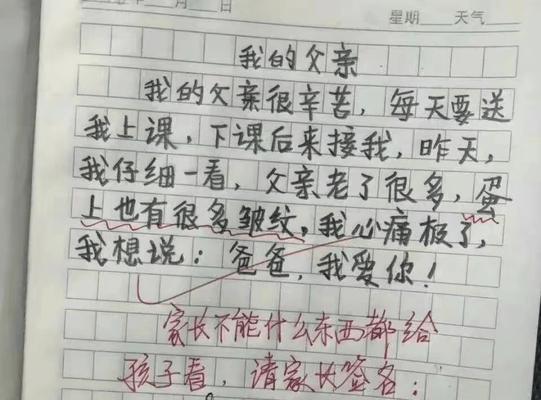 月 日 星期 天气
我的父亲
我的父亲很辛苦，每天要送
我上课，下课后来接我，昨天，
我仔细一看，父亲老了很多，蛋
上也有很多皱纹，我心痛极了，
我想说：爸爸，我爱你！
家长不能什么东西都给
孩子看，请家长签名：